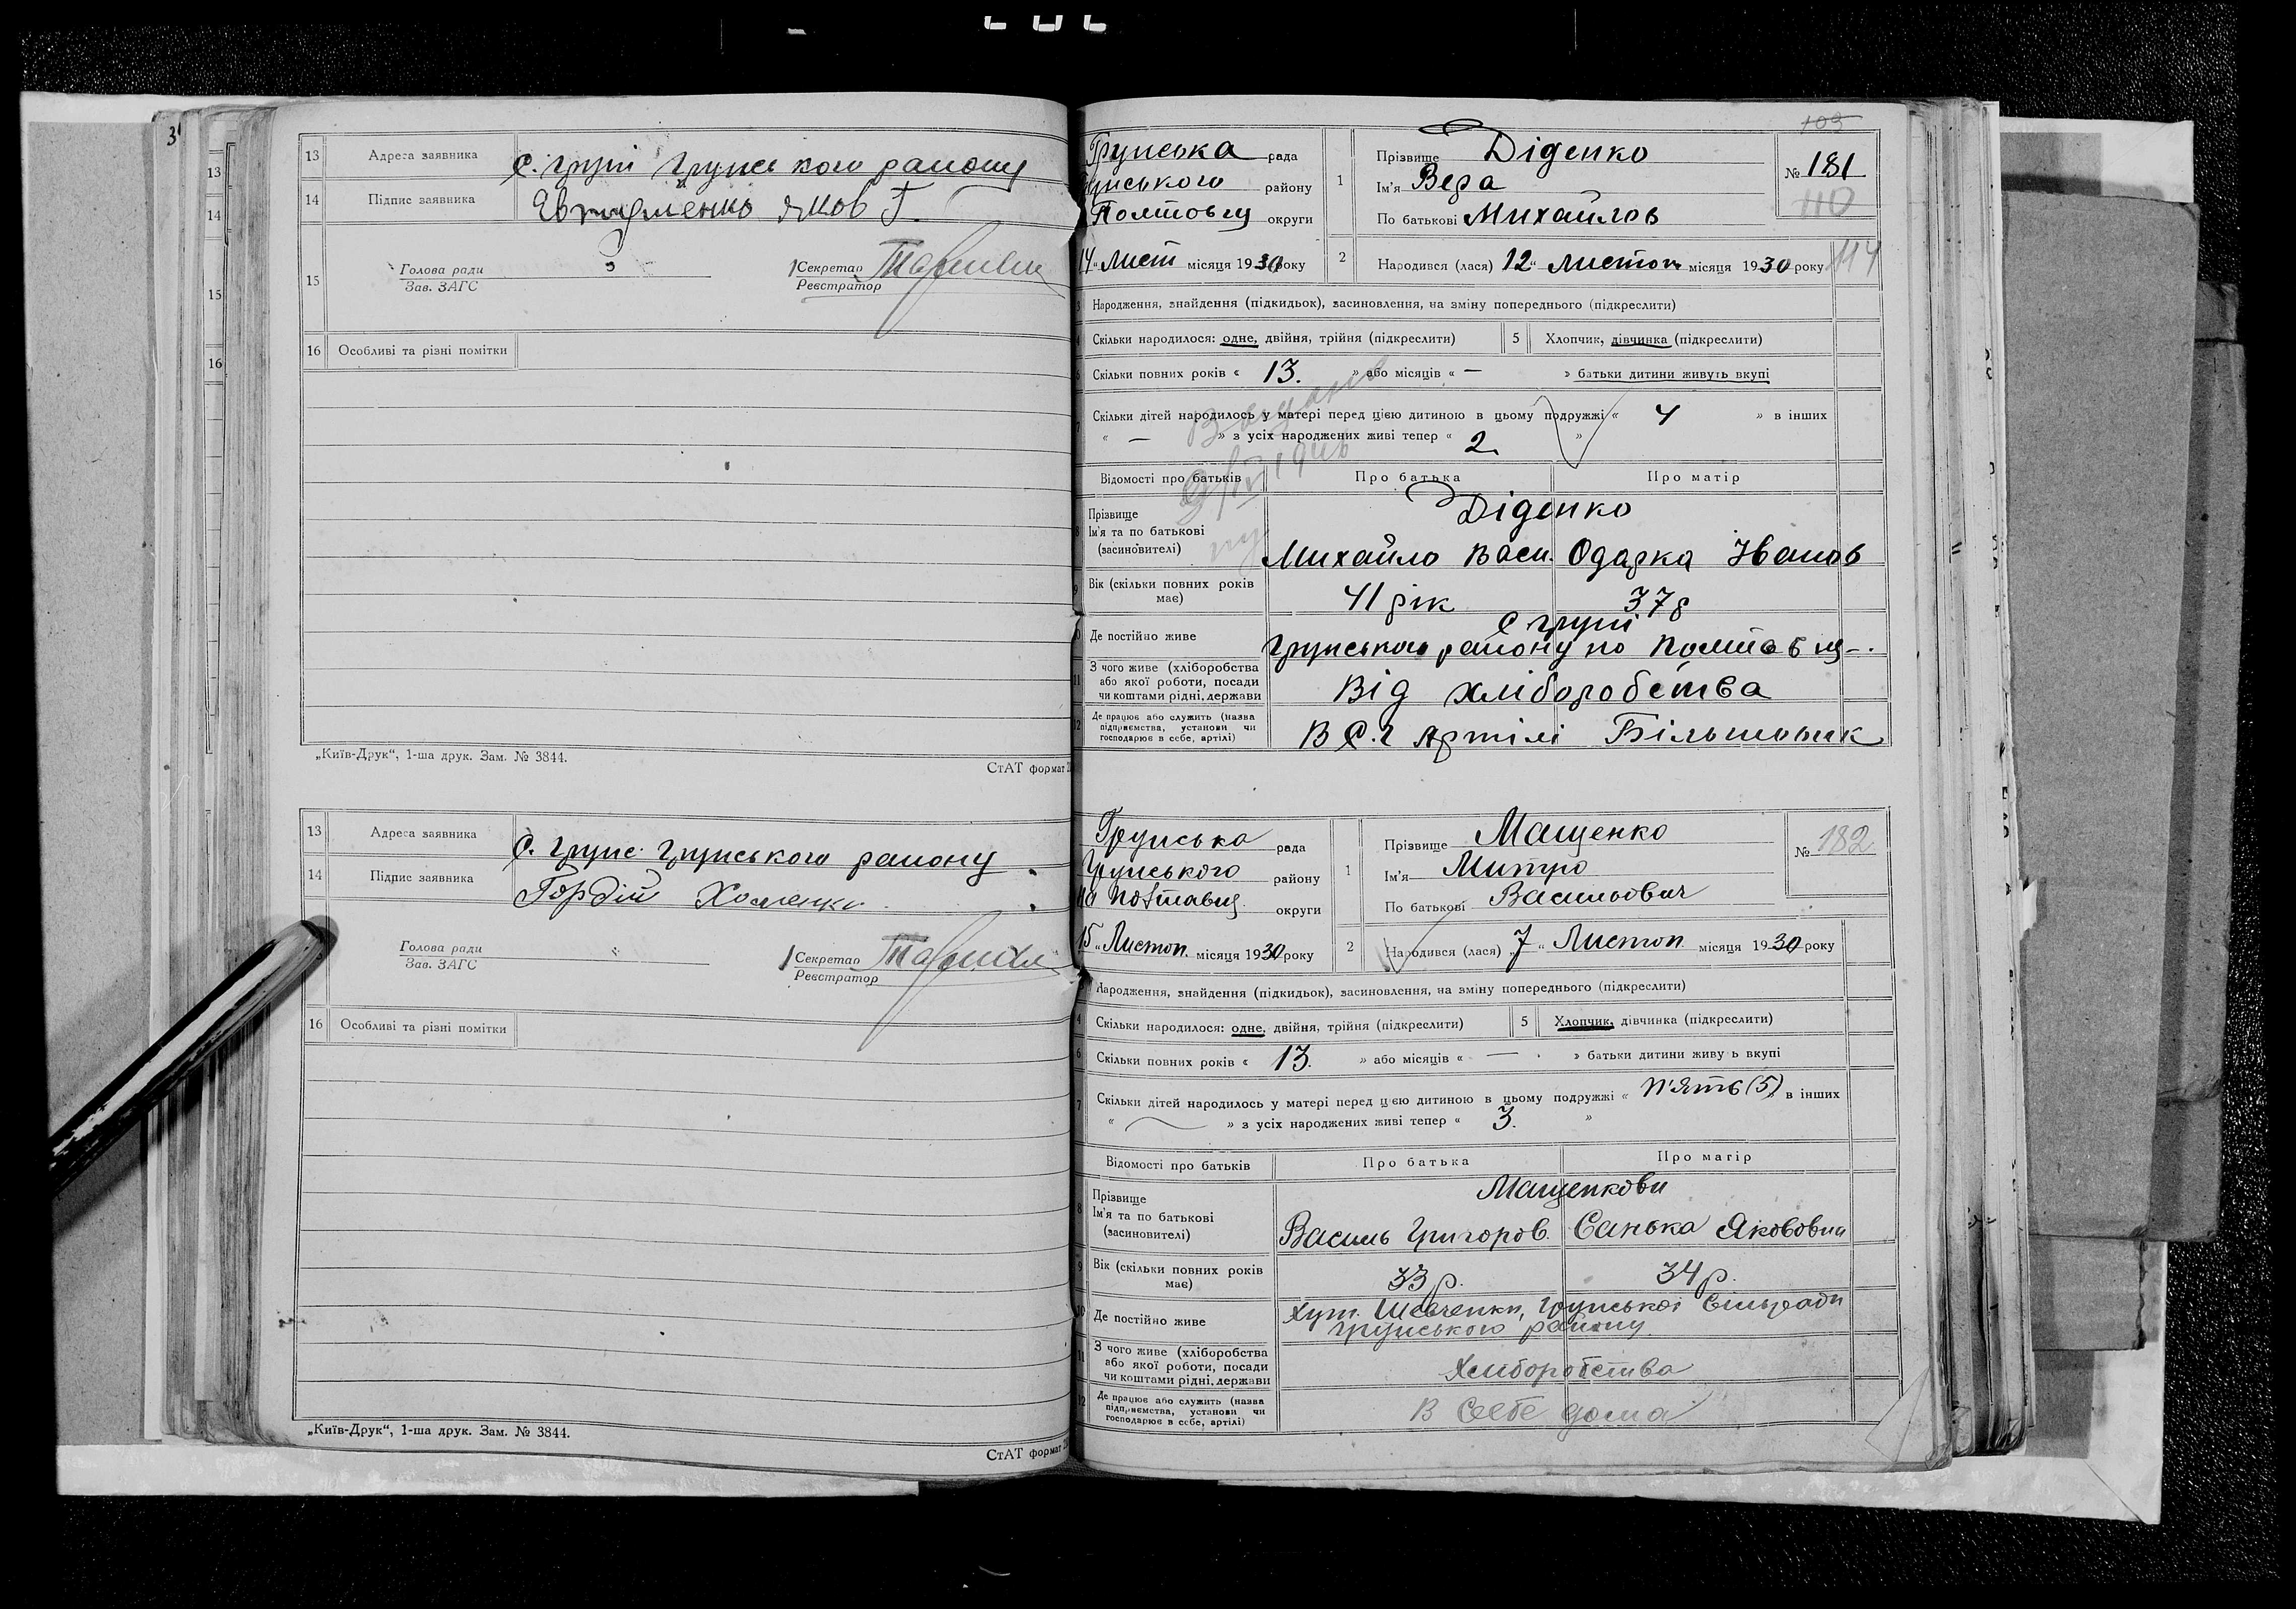 3
13
14
15
16
13 Адреса заявника С. Груні Грунського району
14 Підпис заявника Яков Г.
15 Голова ради
Зав. ЗАГС
Секретар
Реєстратор
16 Особливі та різні помітки
„Київ-Друк“, 1-ша друк. Зам. № 3844.
СтАТ формат
13 Адреса заявника С. Грунс. Грунського району
14 Підпис заявника Гордій Хоменко
Голова ради
Зав. ЗАГС
Секретар
Реєстратор
16 Особливі та різні помітки
„Київ-Друк“, 1-ша друк. Зам. № 3844.
СтАТ формат
103
Грунська рада
району
округи
14 „ Лист місяця 1930 року
1 Прізвище Діденко
Ім'я Вера
По батькові Михайлов
№ 181
110
2 Народився (лася) 12 „ Листоп. місяця 1930 року
114
Народження, знайдення (підкидьок), засиновлення, на зміну попереднього (підкреслити)
Скільки народилося: одне, двійня, трійня (підкреслити) 5 Хлопчик, дівчинка (підкреслити)
Скільки повних років « 13. » або місяців « — » батьки дитини живуть вкупі
Скільки дітей народилось у матері перед цією дитиною в цьому подружжі « 4 » в інших
« — » з усіх народжених живі тепер « 2. »
Відомості про батьків Про батька Про матір
Прізвище Діденко
Ім'я та по батькові
(засиновителі) Михайло Васи. Одарка Іванов
Вік (скільки повних років
має) 41 рік 37 р
Де постійно живе С Груні
Грунського району по
З чого живе (хліборобства
або якої роботи, посади
чи коштами рідні, держави Від хліборобства
Де працює або служить (назва
підприємства, установи чи
господарює в себе, артілі) В С.г Артілі Більшовик
Грунська рада
Грунського району
округи
15 „ Листоп. місяця 1930 року
1 Прізвище Мащенко
Ім'я Митро
По батькові Васильович
№ 182
2 Народився (лася) 7 „ Листоп. місяця 1930 року
Народження, знайдення (підкидьок), засиновлення, на зміну попереднього (підкреслити)
4 Скільки народилося: одне, двійня, трійня (підкреслити) 5 Хлопчик, дівчинка (підкреслити)
6 Скільки повних років « 13. » або місяців « — » батьки дитини живу ь вкупі
7 Скільки дітей народилось у матері перед цією дитиною в цьому подружжі « п'ять (5) » в інших
« — » з усіх народжених живі тепер « 3. »
Відомості про батьків Про батька Про матір
8 Прізвище Мащенкови
Ім'я та по батькові
(засиновителі) Василь Григоров. Санька Якововна
9 Вік (скільки повних років
має) 33 р. 34 р.
10 Де постійно живе Хут. Шевченки, Грунської Сільради
Грунського району.
11 З чого живе (хліборобства
або якої роботи, посади
чи коштами рідні, держави Хліборобства
12 Де працює або служить (назва
підприємства, установи чи
господарює в себе, артілі) В себе дома